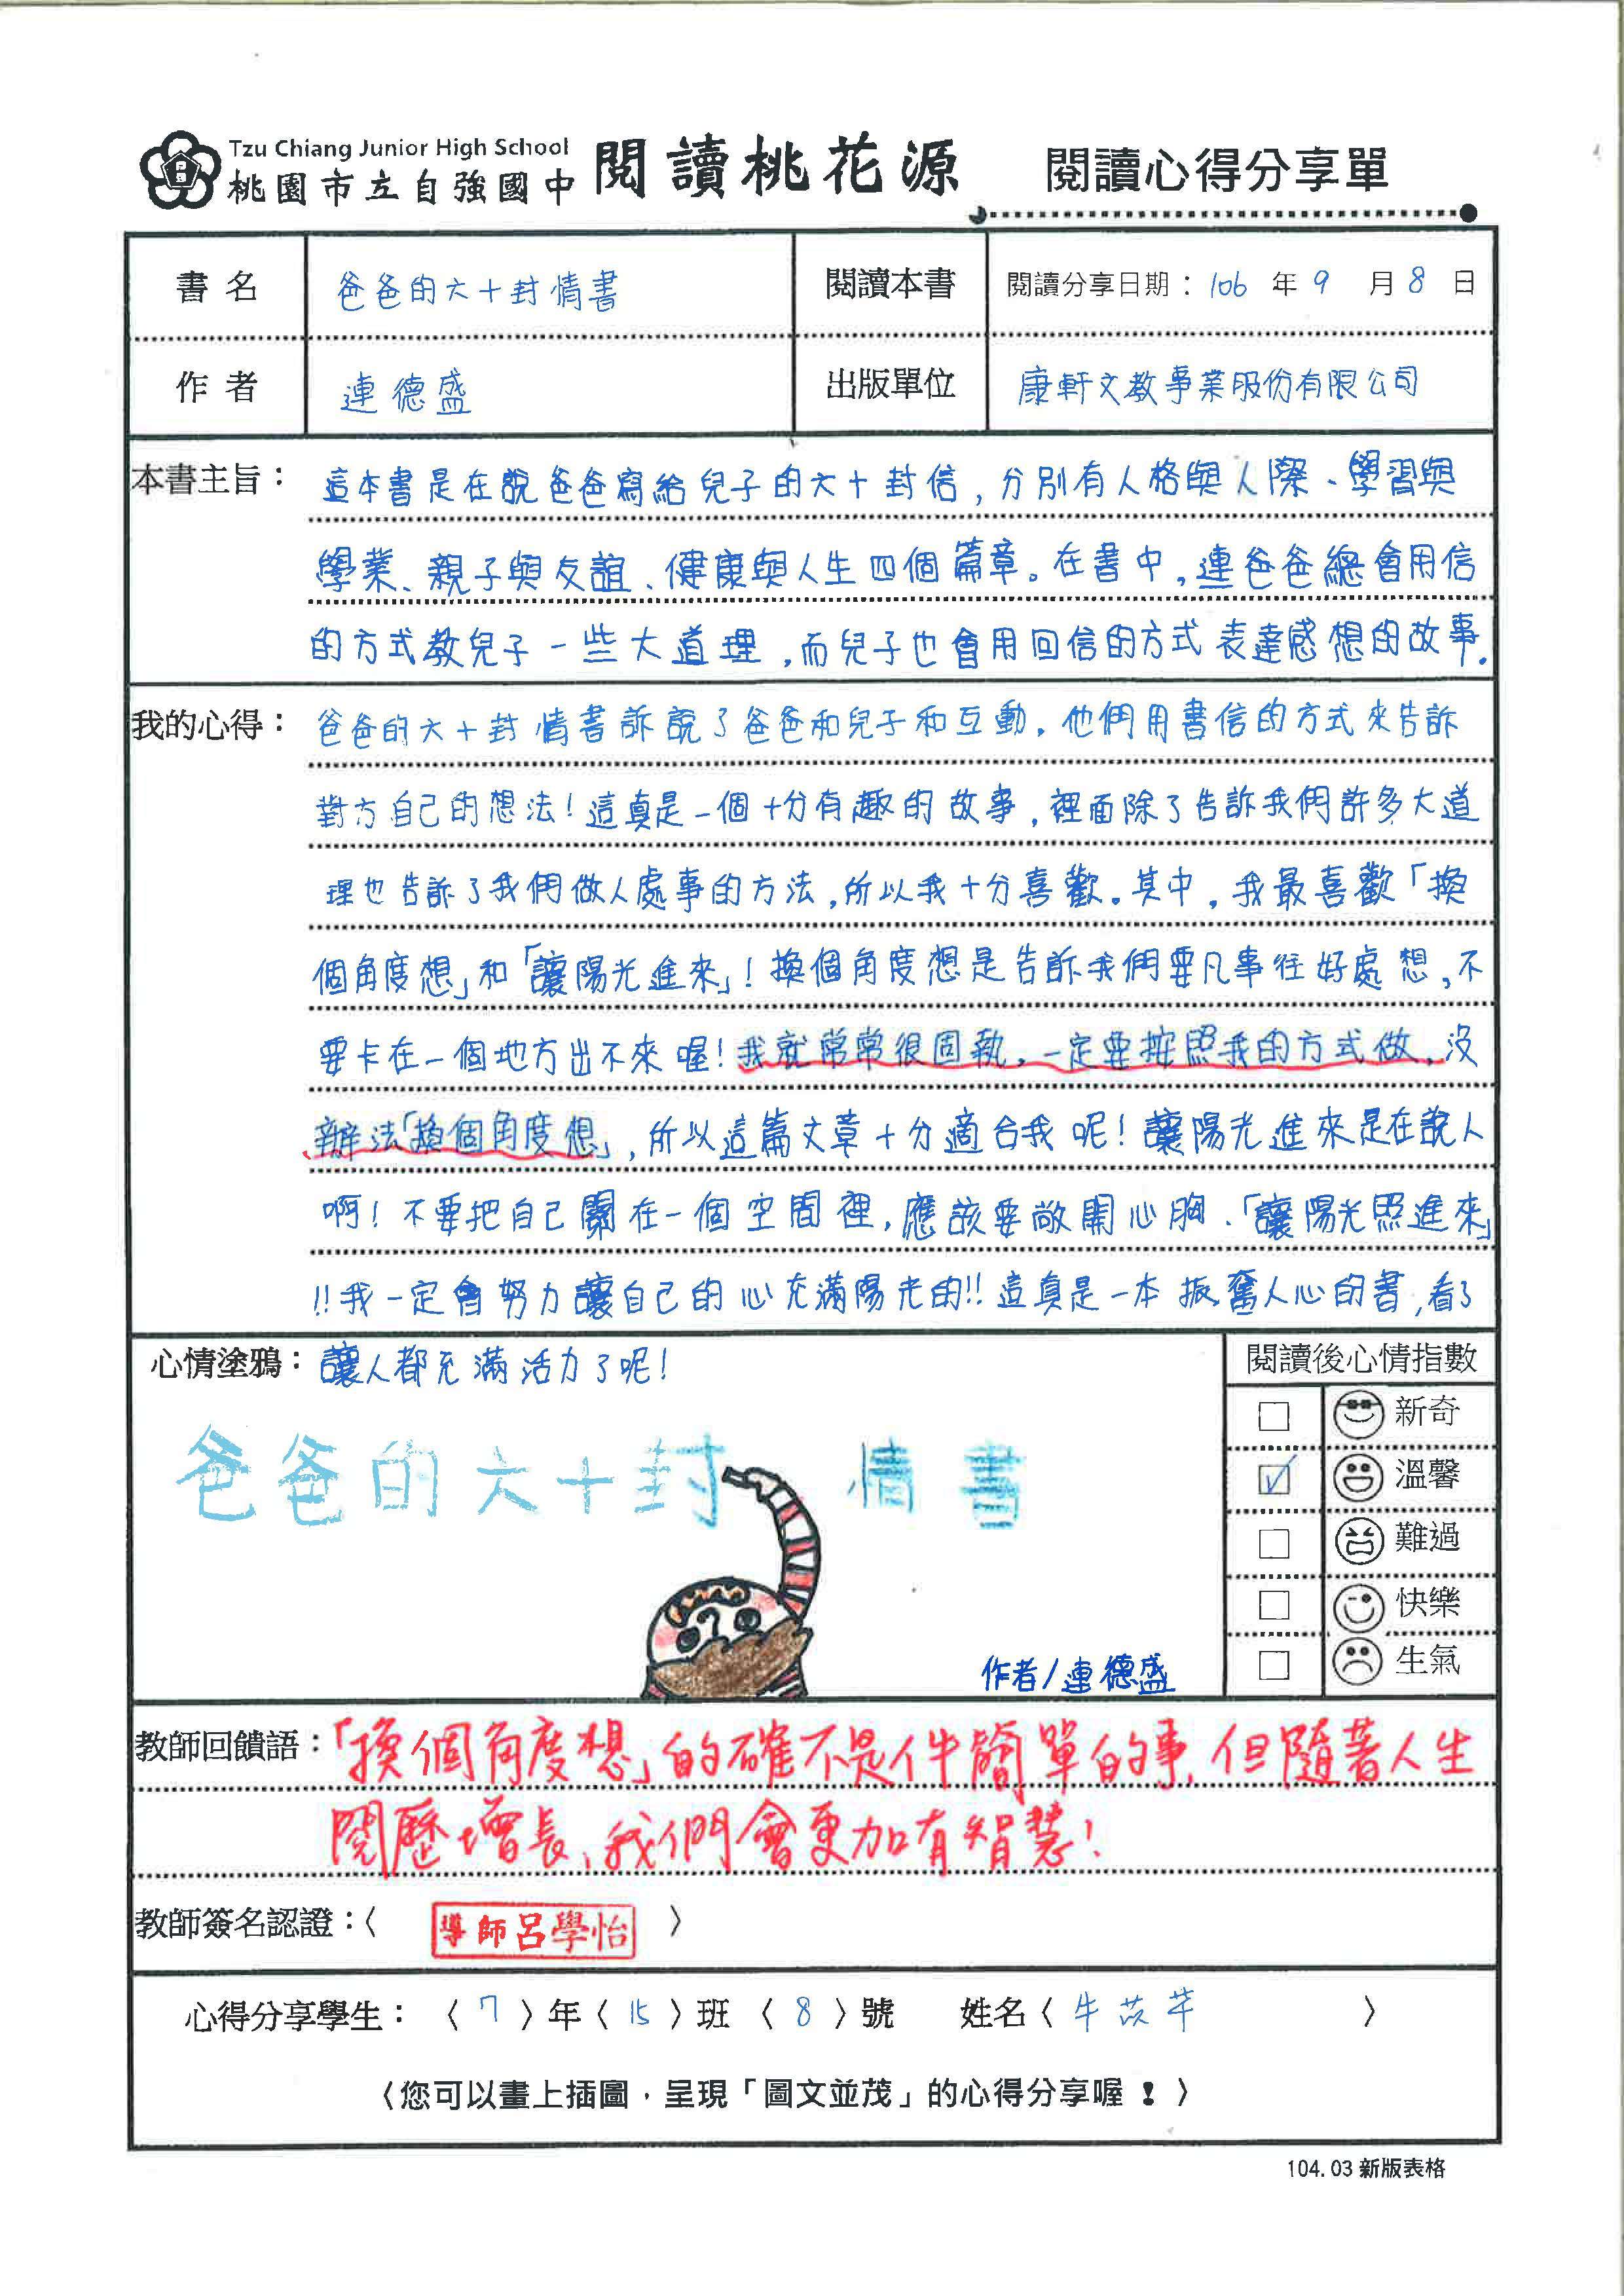 Tzu Chiang Junior High School
桃園市立自強國中 閱讀桃花源 閱讀心得分享單
書名 爸爸的六十封情書 閱讀本書 閱讀分享日期：106 年 9 月 8 日
作者 連德盛 出版單位 康軒文教事業股份有限公司
本書主旨：這本書是在說爸爸寫給兒子的六十封信，分別有人格與人際、學習與
學業、親子與友誼、健康與人生四個篇章。在書中，連爸爸總會用信
的方式教兒子一些大道理，而兒子也會用回信的方式表達感想的故事。
我的心得：爸爸的六十封情書訴說了爸爸和兒子和互動，他們用書信的方式來告訴
對方自己的想法！這真是一個十分有趣的故事，裡面除了告訴我們許多大道
理也告訴了我們做人處事的方法，所以我十分喜歡。其中，我最喜歡「換
個角度想」和「讓陽光進來」！換個角度想是告訴我們要凡事往好處想，不
要卡在一個地方出不來喔！我就常常很固執，一定要按照我的方式做，沒
辦法「換個角度想」，所以這篇文章十分適合我呢！讓陽光進來是在說人
啊！不要把自己關在一個空間裡，應該要敞開心胸、「讓陽光照進來」
!!我一定會努力讓自己的心充滿陽光的!!這真是一本振奮人心的書，看了
心情塗鴉：讓人都充滿活力了呢！
閱讀後心情指數
新奇
溫馨
難過
快樂
生氣
爸爸的六十封情書
作者/連德盛
教師回饋語：「換個角度想」的確不是件簡單的事，但隨著人生
閱歷增長，我們會更加有智慧！
教師簽名認證：〈 導師呂學怡 〉
心得分享學生：〈 7 〉年〈 15 〉班〈 8 〉號 姓名〈 牛苡芊 〉
〈您可以畫上插圖，呈現「圖文並茂」的心得分享喔！〉
104.03 新版表格